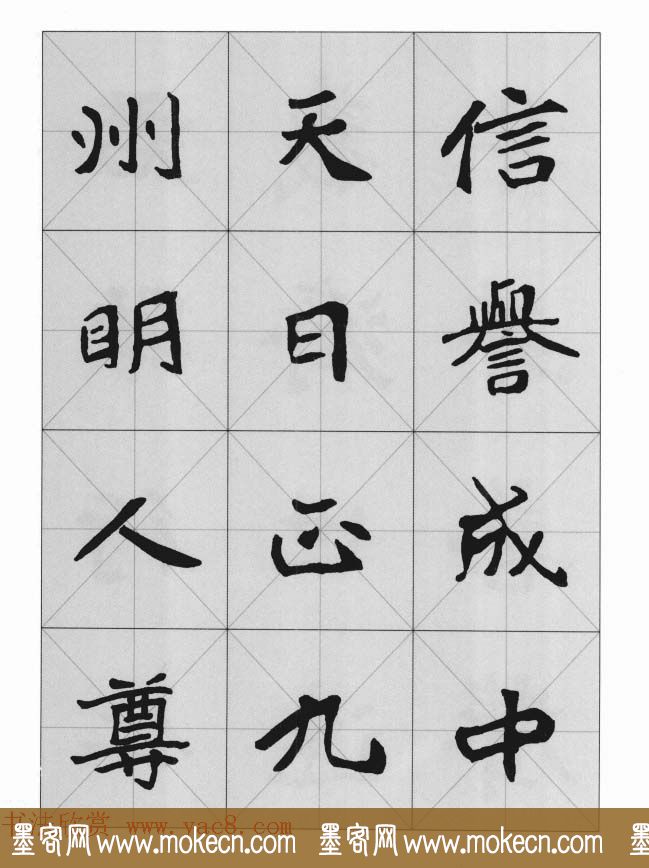 信譽成中
天日正九
州明人尊
书法欣赏 www.yac8.com
墨客网www.mokecn.com 墨客网www.mokecn.com